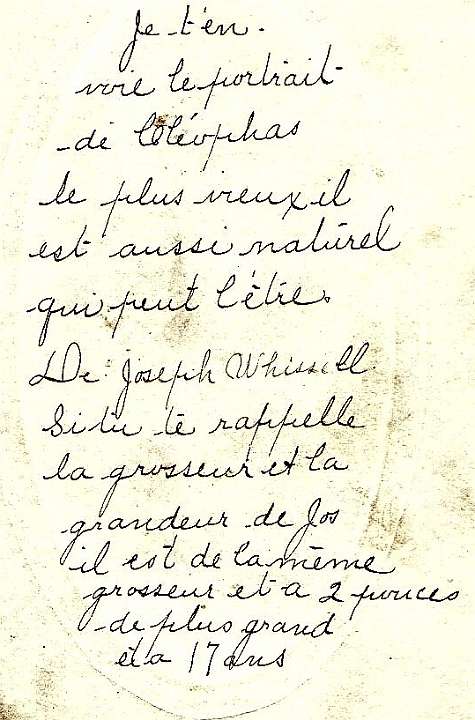 Je t'en.
voie le portrait
de Cléophas
le plus vieux il
est aussi naturel
qui peut l'être.
De Joseph Whissell
Si tu te rappelle
la grosseur et la
grandeur de Jos
il est de la même
grosseur et a 2 pouces
de plus grand
et a 17 ans